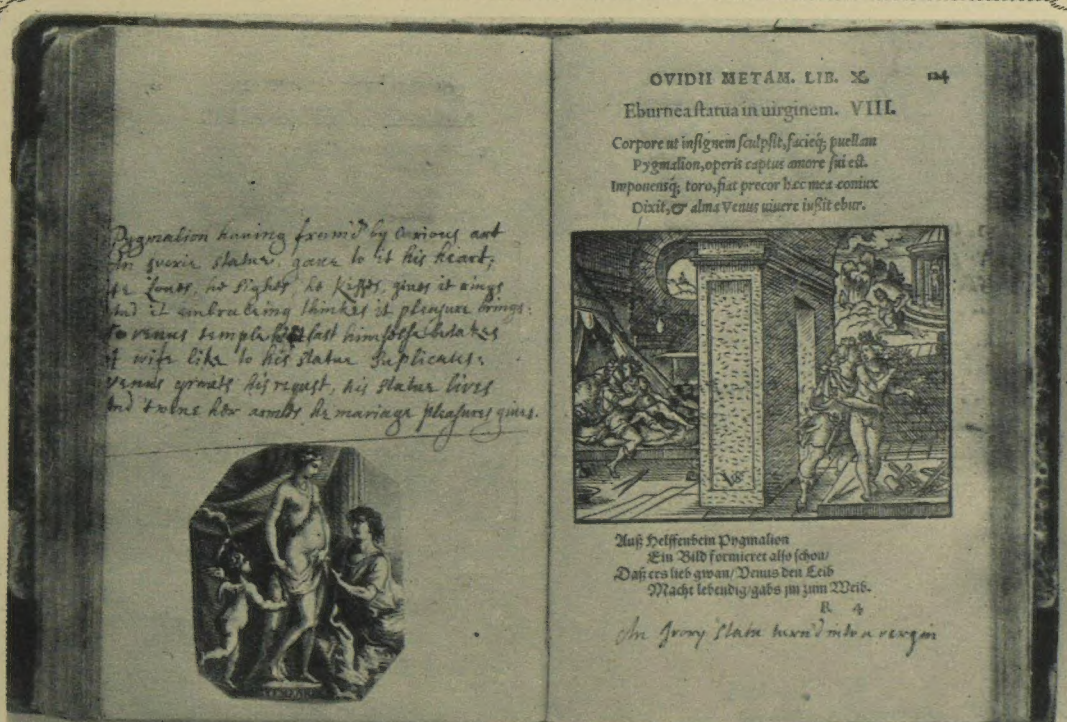 Pygmalion having fram'd by Curious art
An ivorie statue, gave to it his heart;
He loves, he sighes, he kisses, gives it rings
And it embracing thinkes it pleasure brings:
To venus temple last himselfe betakes
A wife like to his statue Suplicates:
venus grants his request, his statue lives
And twins her armes he mariage pleasures gives.
OVIDII METAM. LIB. X. 124
Eburnea statua in uirginem. VIII.
Corpore ut insignem sculpsit, facieq; puellam
Pygmalion, operis captus amore sui est.
Imponensq; toro, fiat precor hæc mea coniux
Dixit, & alma Venus uiuere iußit ebur.
Auß Helffenbein Pygmalion
Ein Bild formieret also schon/
Daß ers lieb gwan/ Venus den Leib
Macht lebendig/ gabs jm zum Weib.
R 4
An Ivory Statu turn'd into a vergin